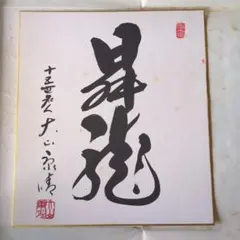 昇龍
十五世名人 大山康晴